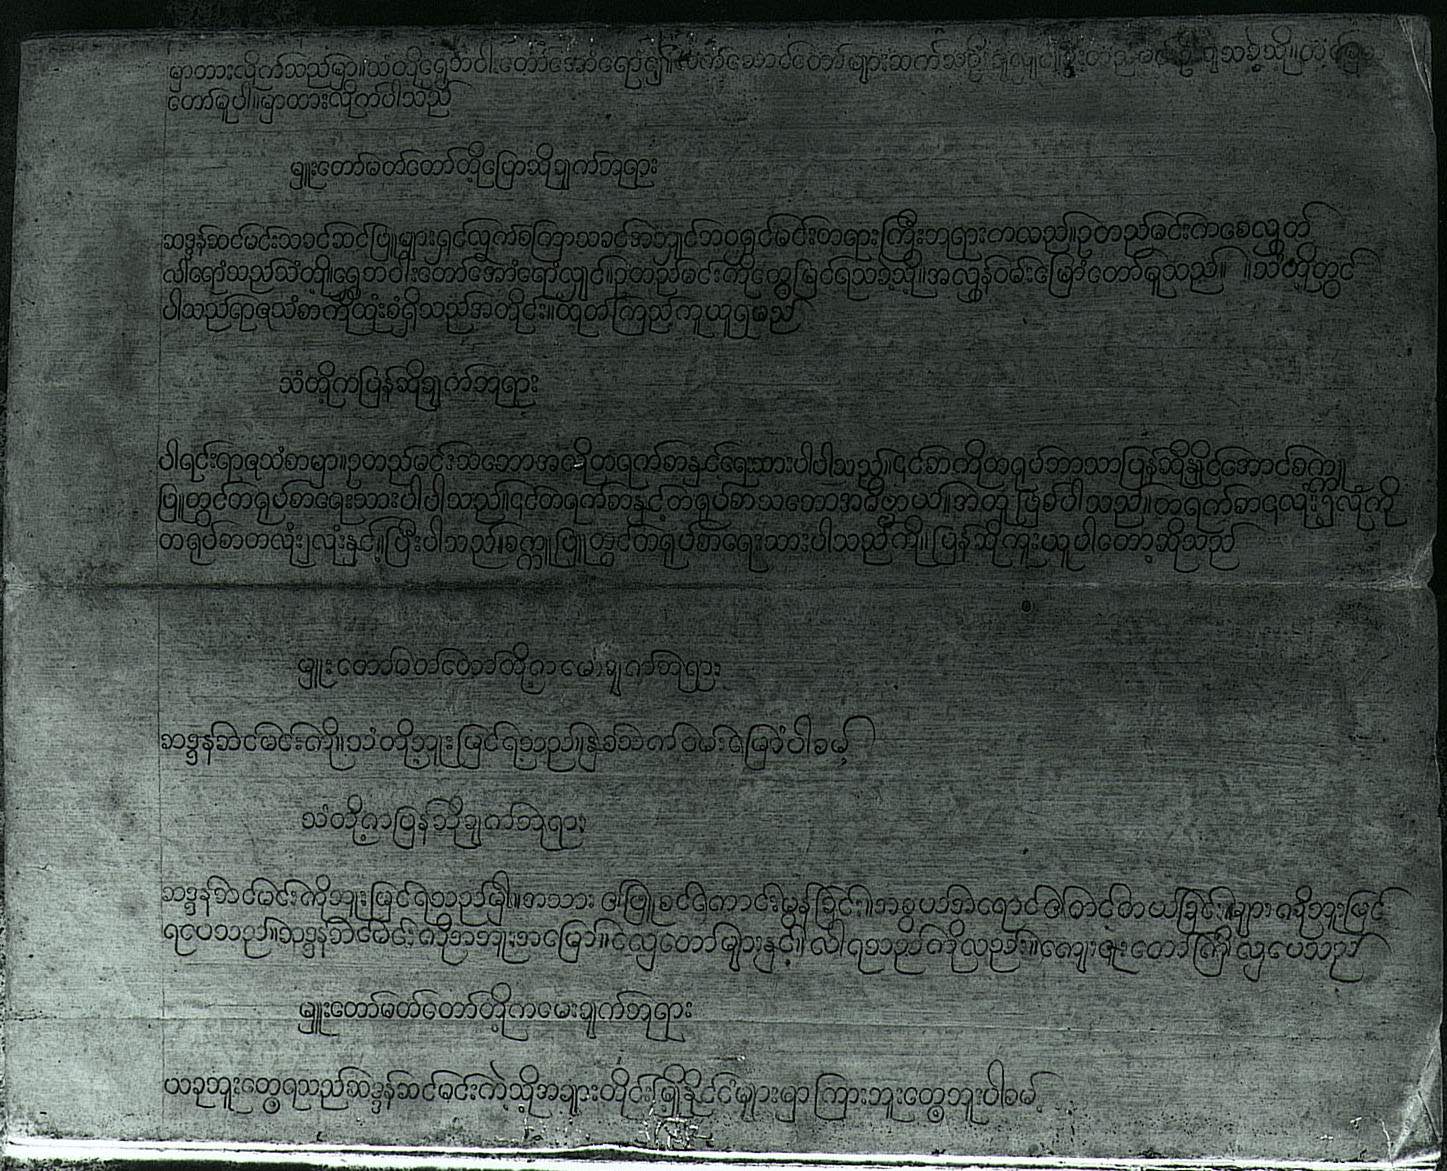 မှာထားလိုက်သည်မှာ။သံတို့ရွှေဘဝါးတော်အောက်ရောက်၍။လက်ဆောင်တော်များဆက်သပြီး
တော်မူပါ။မှာထားလိုက်ပါသည်
မှူးတော်မတ်တော်တို့ပြောဆိုချက်ဘုရား
ဆဒ္ဒန်ဆင်မင်းသခင်ဆင်ဖြူများရှင်လွှက်စကြာသခင်အသျှင်ဘဝရှင်မင်းတရားကြီးဘုရားကလည်။ဥတည်မင်းကစေလွှတ်
လိုရောက်သည်သံတို့။ရွှေဘဝါးတော်အောက်ရောက်လျှင်။ဥတည်မင်းကိုတွေ့မြင်ရသခဲ့သို့။အလွန်ဝမ်းမြောက်တော်မူသည်။ ။သံတို့တွင်
ပါသည်ရာဇသံစာကိုထုံးစံရှိသည်အတိုင်း။ထုတ်ကြည့်ကူယူရမည်
သံတို့ကပြန်ဆိုချက်ဘုရား
ပါရင်းရာဇသံစာမှာ။ဥတည်မင်းသဘောအလိုတရက်စာနှင်ရေးသားပါပါသည်။၎င်စာကိုတရုပ်ဘာသာပြန်ဆိုနိုင်အောင်စက္ကူ
ဖြူတွင်တရုပ်စာရေးသားပါပါသည်။၎င်တရက်စာနှင့်တရုပ်စာသဘောအဓိဗ္ဗာယ်။အတူဖြစ်ပါသည်။တရက်စာ၎လုံး၅လုံကို
တရုပ်စာတလုံး၂လုံးနှင့်။ပြီးပါသည်။စက္ကူဖြူတွင်တရုပ်စာရေးသားပါသည်ကို။ပြန်ဆိုကူးယူပါတော့ဆိုသည်
မှူးတော်မတ်တော်တို့ကမေးချက်ဘုရား
ဆဒ္ဒန်ဆင်မင်းကို။သံတို့ဘူးမြင်ရသည်။နှစ်သက်ဝမ်းမြောက်ပါခမ့်
သံတို့ကပြန်ဆိုချက်ဘုရား
ဆဒ္ဒန်ဆင်မင်းကိုဘူးမြင်ရသည်မှာ။အသားဖြူစင်ကောင်းမွန်ခြင်း။အရွယ်အရောင်တင့်တယ်ခြင်းများကိုဘူးမြင်
ရပေသည်။ဆဒ္ဒန်ဆင်မင်းကိုအဘူးအမြော်။လှတော်များနှင့်။လိုရသည်ကိုလည်း။ကျေးဇူးတော်ကြီးလှပေသည်
မှူးတော်မတ်တော်တို့ကမေးချက်ဘုရား
ယခုဘူးတွေ့ရသည်ဆဒ္ဒန်ဆင်မင်းကဲ့သို့အချားတိုင်းရှိနိုင်ငံများမှာကြားဘူးတွေ့ဘူးပါခမ့်